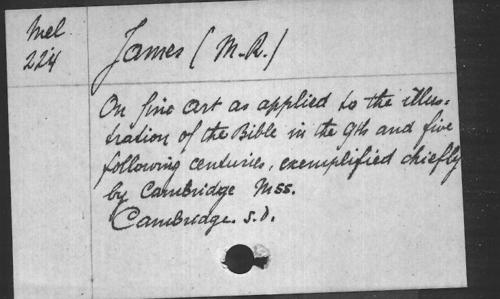 Mel.
224
James (M.R.)
On fine art as applied to the illus-
tration of the Bible in the 9th and five
following centuries, exemplified chiefly
by Cambridge Mss.
Cambridge. s.d.